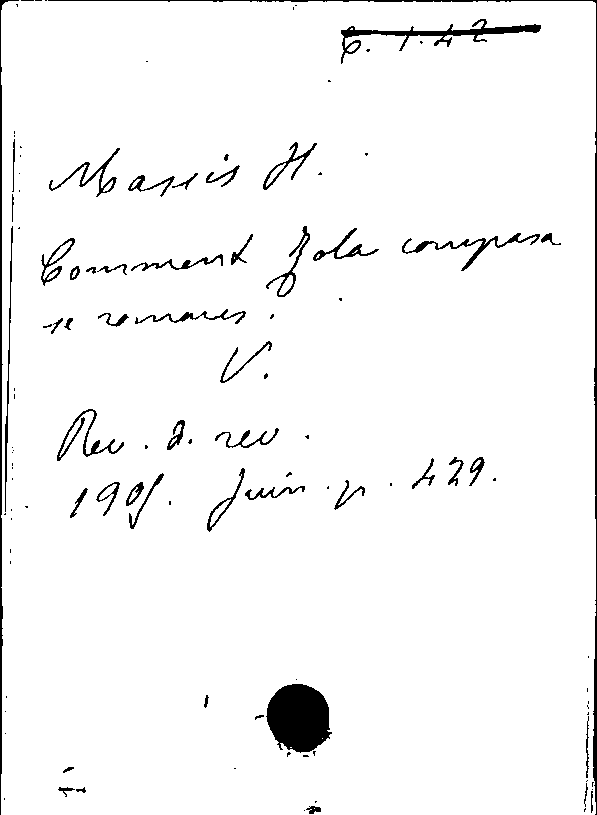 C. 1.42
Massis H.
Comment Zola composa
se romans.
V.
Rev. d. rev.
1905. Juin. p. 429.